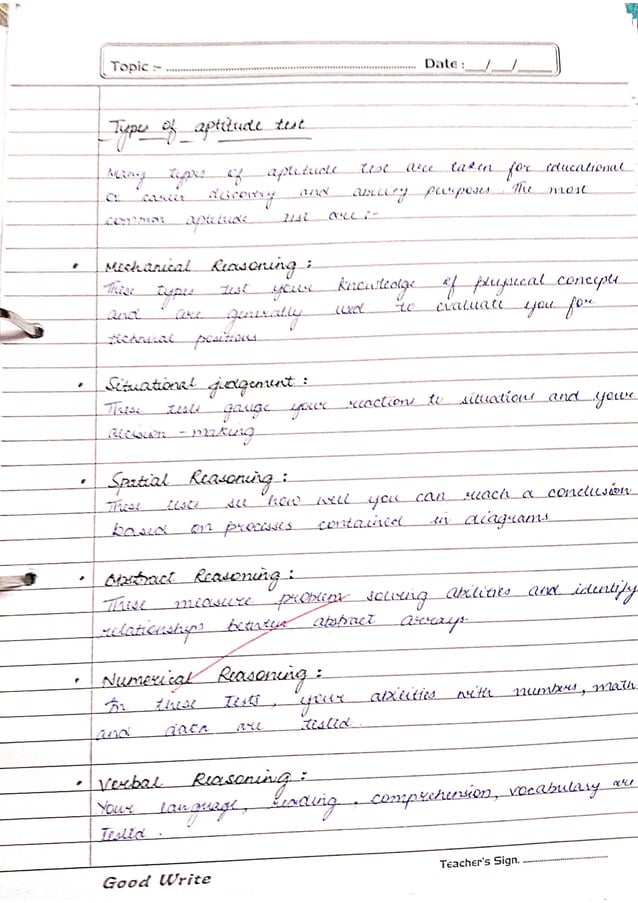 Topic :- Date : __/__/____
Types of aptitude test
Many types of aptitude test are taken for educational
or career discovery and ability purposes. The most
common aptitude test are :-
• Mechanical Reasoning :
These types test your knowledge of physical concepts
and are generally used to evaluate you for
technical positions
• Situational judgement :
These tests gauge your reactions to situations and your
decision - making
• Spatial Reasoning :
These tests see how well you can reach a conclusion
based on processes contained in diagrams
• Abstract Reasoning :
These measure problem solving abilities and identify
relationships between abstract arrays.
• Numerical Reasoning :
In these tests, your abilities with numbers, math
and data are tested.
• Verbal Reasoning :
Your language, reading, comprehension, vocabulary are
tested.
Teacher's Sign.
Good Write